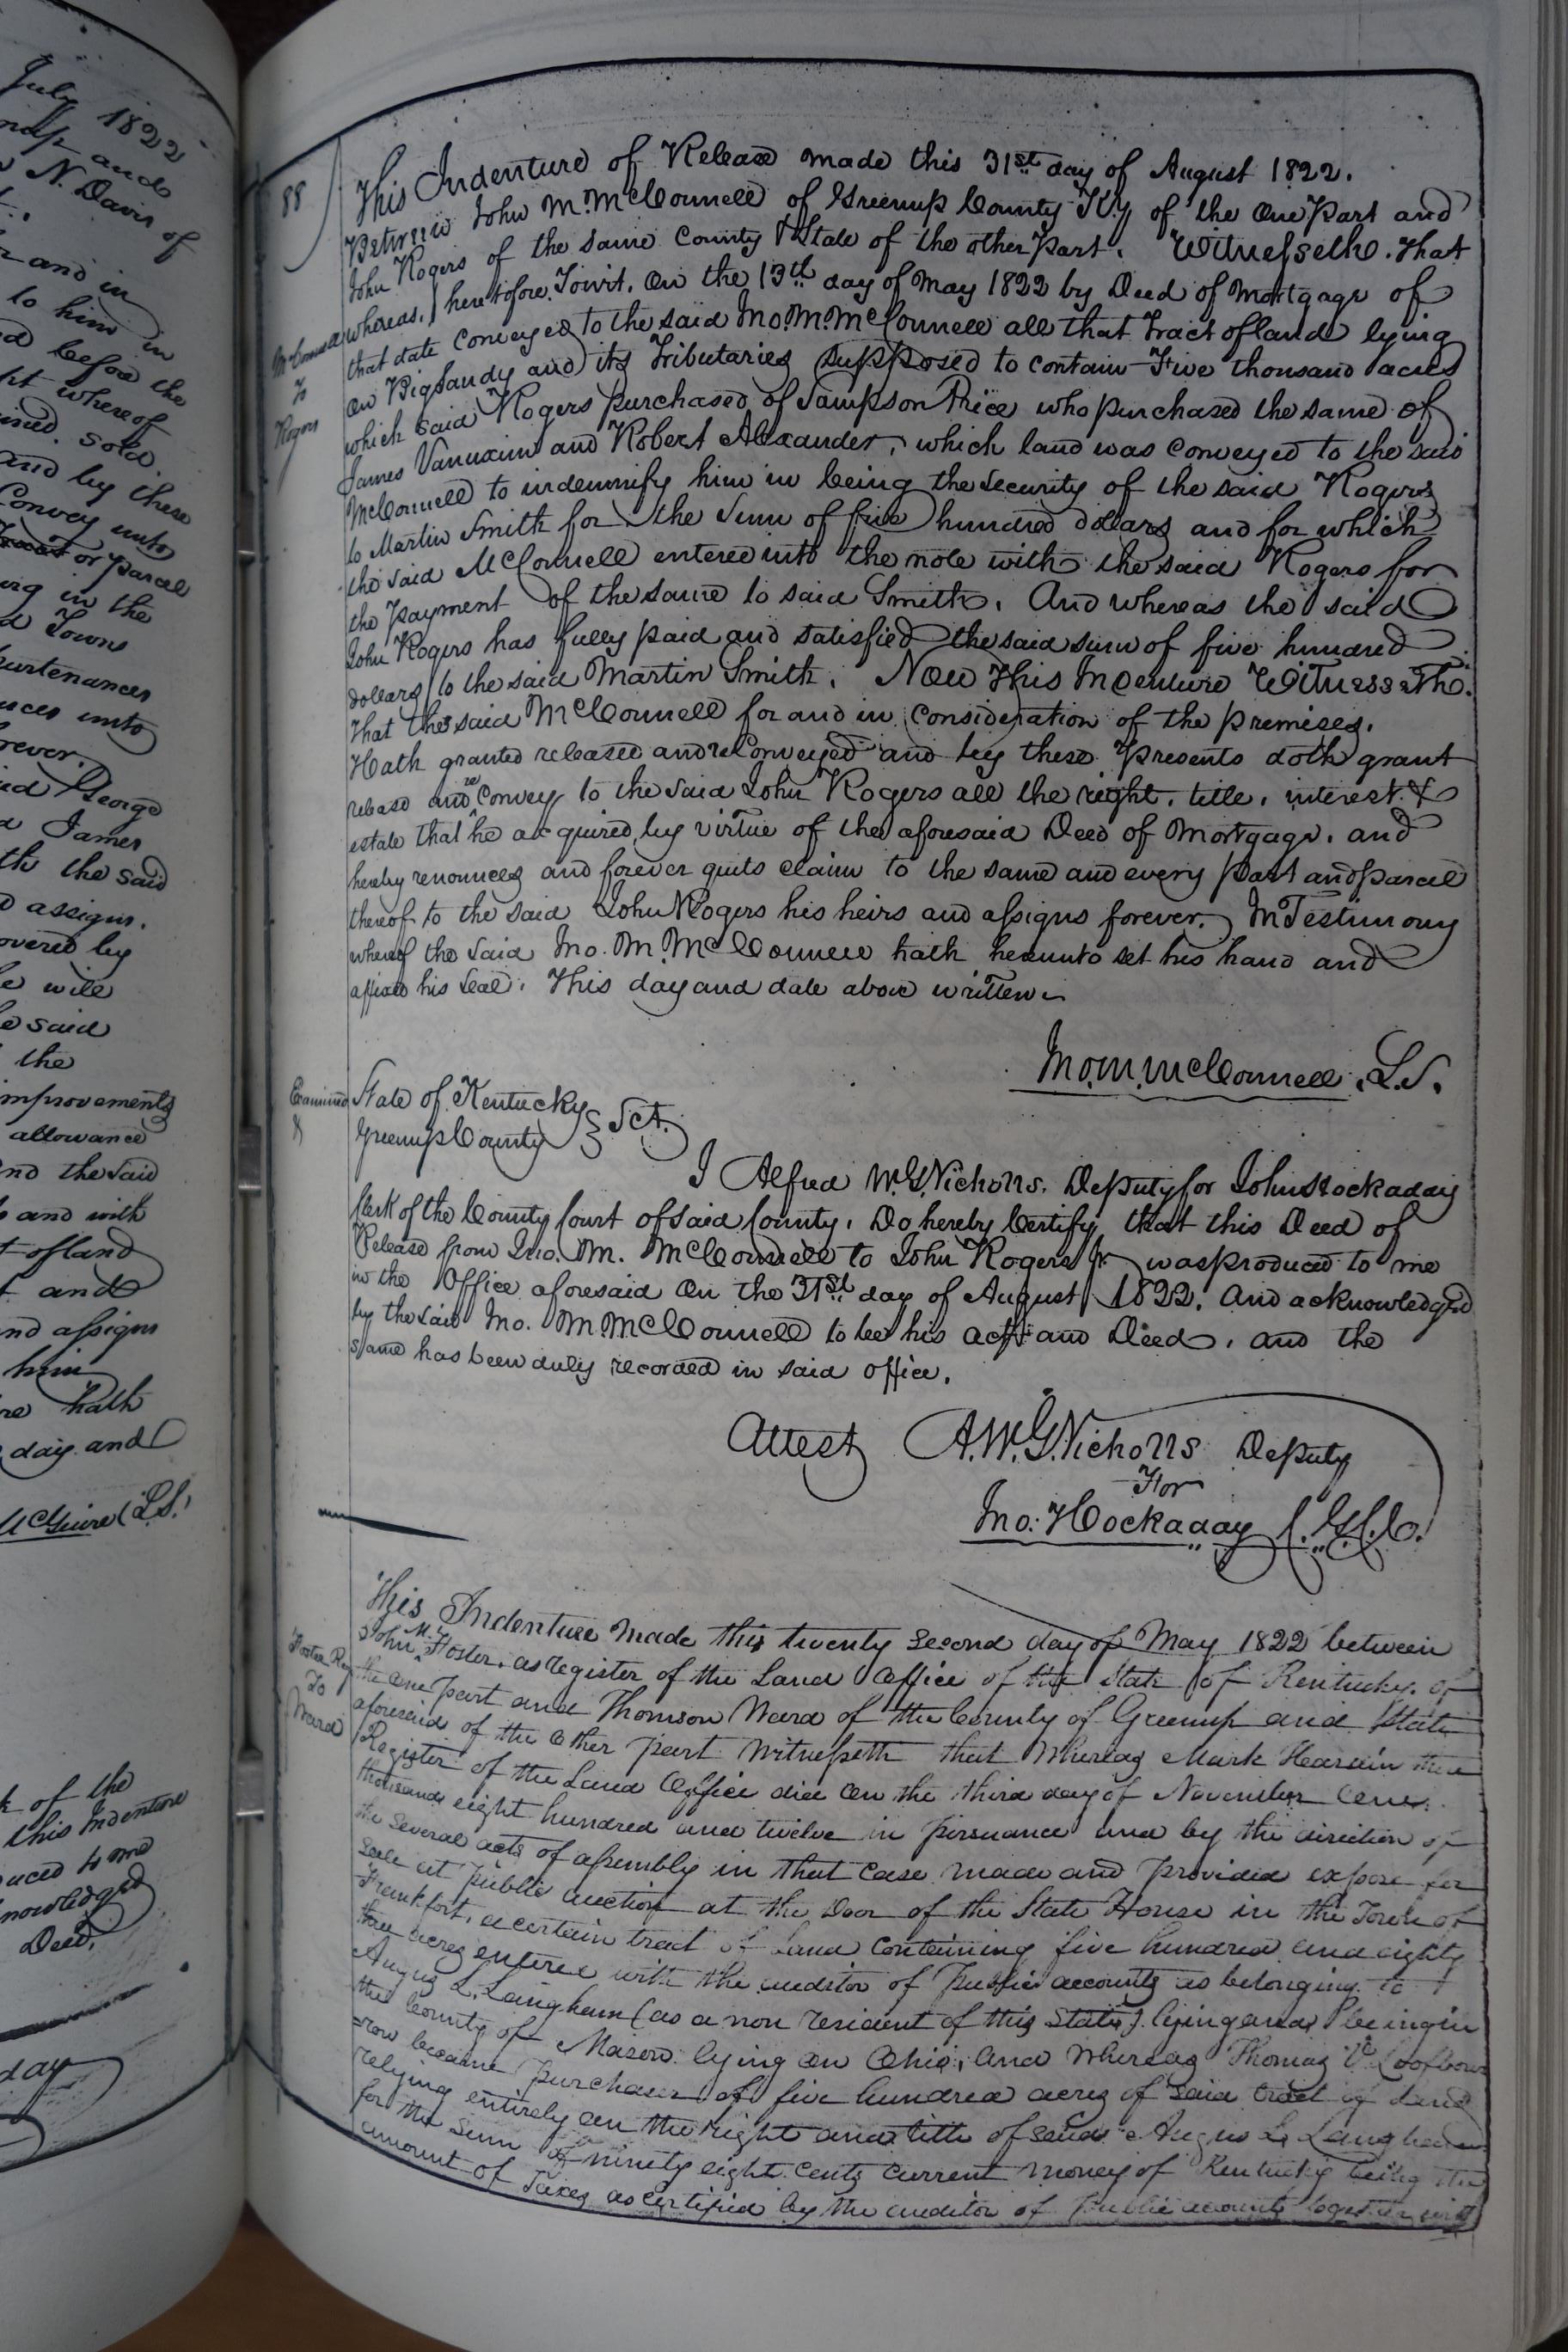 July 1822
and
N. Davis of
and in
to him in
before the
whereof
sold.
and by these
Convey unto
or parcel
in the
Towns
unto
George
James
th the said
assigns.
by
will
said
the
improvements
allowance
and the said
and with
of land
and
and assigns
him
hath
day and
McGuire (L.S.)
of the
this Indenture
to me
Deed.
day
88
McConnell
To
Rogers
This Indenture of Release made this 31st day of August 1822.
Between John M. McConnell of Greenup County Ky of the One Part and
John Rogers of the same County & State of the other Part. Witnesseth. That
whereas, heretofore. Towit. On the 13th day of May 1822 by Deed of Mortgage of
that date conveyed to the said Jno. M. McConnell all that Tract of land lying
on Bigsandy and its Tributaries supposed to contain Five thousand acres
which said Rogers purchased of Sampson Price who purchased the same of
James Vanuxim and Robert Alexander, which land was conveyed to the said
McConnell to indemnify him in being the security of the said Rogers
to Martin Smith for the Sum of five hundred dollars and for which
the said McConnell entered into the note with the said Rogers for
the Payment of the same to said Smith. And whereas the said
John Rogers has fully paid and satisfied the said sum of five hundred
dollars to the said Martin Smith. Now This Indenture Witnesseth.
That the said McConnell for and in consideration of the premises.
Hath granted released and reConveyed and by these Presents doth grant
release and reConvey to the said John Rogers all the right, title, interest &
estate that he acquired by virtue of the aforesaid Deed of Mortgage. and
hereby renounces and forever quits claim to the same and every part and parcel
thereof to the said John Rogers his heirs and assigns forever. In Testimony
whereof the said Jno. M. McConnell hath hereunto set his hand and
affixed his Seal. This day and date above written
Jno. M. McConnell. L.S.
Examined
State of Kentucky
Greenup County } Sct.
I Alfred W. G. Nicholls. Deputy for John Hockaday
Clerk of the County Court of said County. Do hereby Certify that this Deed of
Release from Jno. M. McConnell to John Rogers Jr. was produced to me
in the Office aforesaid On the 31st day of August 1822. and acknowledged
by the said Jno. M McConnell to bee his act and Deed. and the
same has been duly recorded in said office.
Attest A. W. G. Nicholls Deputy
For
Jno. Hockaday C.G.C.C.
Foster Reg
To
Ward
This Indenture made this twenty second day of May 1822 between
John M. Foster, as register of the Land Office of the State of Kentucky. of
the one part and Thomson Ward of the County of Greenup and State
aforesaid of the other part Witnesseth that Whereas Mark Hardin then
Register of the Land Office did on the third day of November One
thousand eight hundred and twelve in pursuance and by the direction of
the several acts of assembly in that case made and provided expose for
sale at public auction at the Door of the State House in the Town of
Frankfort, a certain tract of Land containing five hundred and eighty
three acres entered with the auditor of Public accounts as belonging to
Angus L. Langham (as a non resident of this State) lying and being in
the County of Mason lying on Ohio, and Whereas Thomas V. Loofbour
=row became purchaser of five hundred acres of said tract of land
relying entirely on the right and title of said Angus L. Langham
for the sum of ninety eight cents current money of Kentucky being the
amount of Taxes as certified by the auditor of Public accounts together with